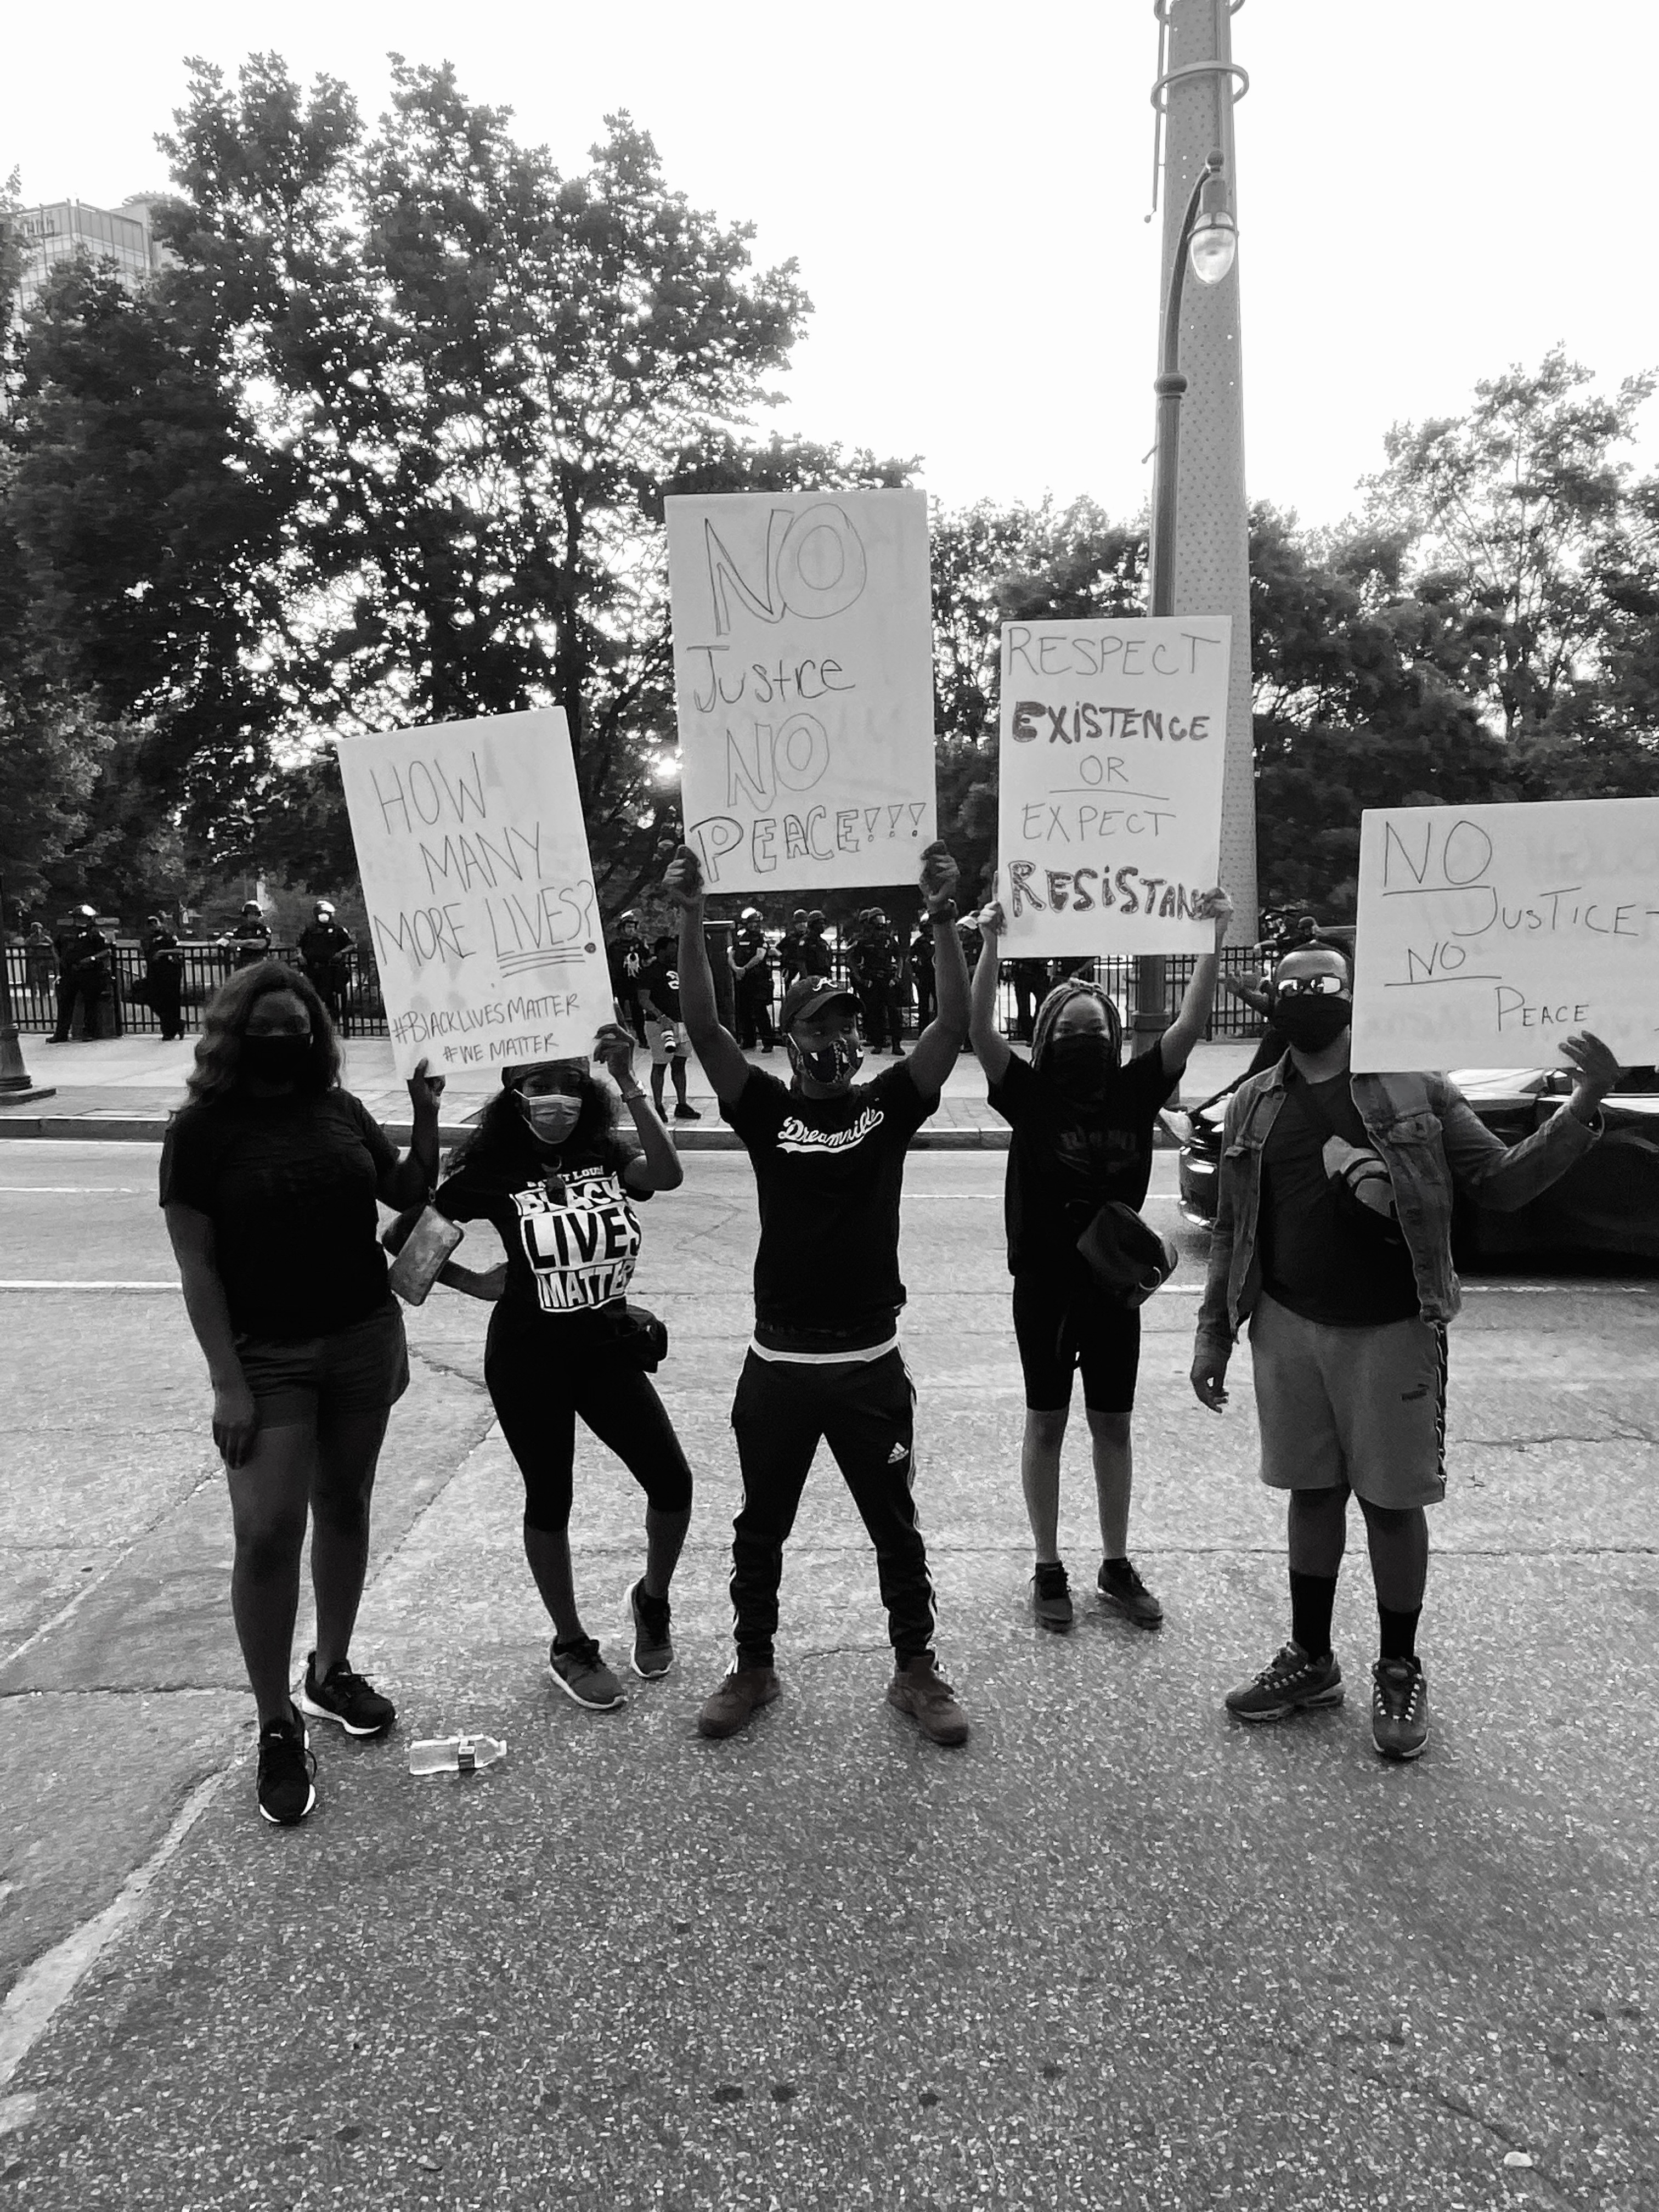 HOW
MANY
MORE LIVES?
#BLACKLIVESMATTER
#WE MATTER
NO
Justice
NO
PEACE!!!
RESPECT
EXISTENCE
OR
EXPECT
RESISTANC
NO
JUSTICE-
NO
PEACE
BLACK
LIVES
MATTER
Dreamville
A
PUMA